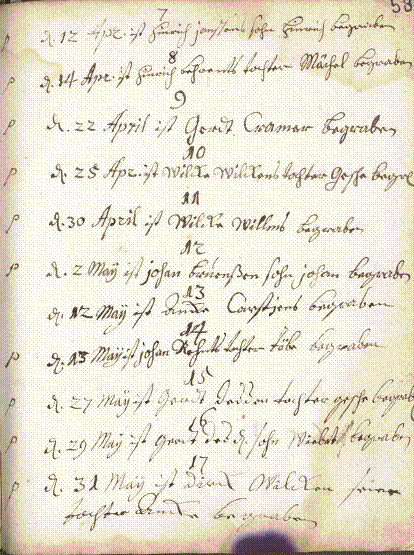 58
7
d. 12 Apr. ist hinrich janssens sohn hinrich begraben
8
d. 14 Apr. ist hinrich behrents tochter Mächel begraben
9
d. 22 April ist Gerdt Cramer begraben
10
d. 25 Apr. ist Wilke Wilckens tochter Gesche begra
11
d. 30 April ist Wilke Willms begraben
12
d. 2 May ist johan bruenßen sohn johan begraben
13
d. 12 May ist Carstjens begraben
14
d. 13 May ist johan tochter Töbe begraben
15
d. 27 May ist Gerdt Dedden tochter gesche begrab
16
d. 29 May ist Gerdt sohn Wiebet begraben
17
d. 31 May ist dirck Wilcken seine
tochter begraben